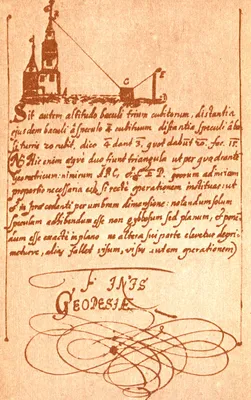 C E
Sit autem altitudo baculi trium cubitorum, distantia
ejusdem baculi à speculo 4 cubituum distantia speculi à ba
si turris 20 cubit, dico 4 dant 3, quot dabūt 20, fac. 15.
Hic enim ergo duo fiunt triangula ut per quadrante
Geometricum: nimirum ABC, et CED, quorum ad inuicem
proportio necessaria est, si recte operationem instituas, ut
in præcedenti per umbram dimensione: notandum solum
speculum adhibendum esse non gybosum sed planum, et ponen
dum esse exactè in plano ne altera sui parte elevetur depri-
meturve, aliàs fallet visum, visus autem operationem)
FINIS
GEODESIÆ